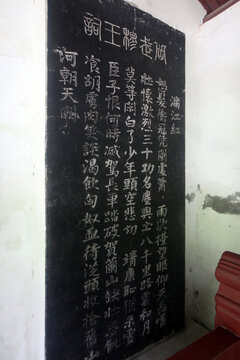 岳武穆王詞
滿江紅
怒髮衝冠凭闌處蕭〻雨歇擡望眼仰天長嘯
壯懷激烈三十功名塵與土八千里路雲和月
莫等閑白了少年頭空悲切 靖康恥猶未雪
臣子恨何時滅駕長車踏破賀蘭山缺壯志飢
飡胡虜肉笑談渴飲匈奴血待從頭收拾舊山
河朝天闕